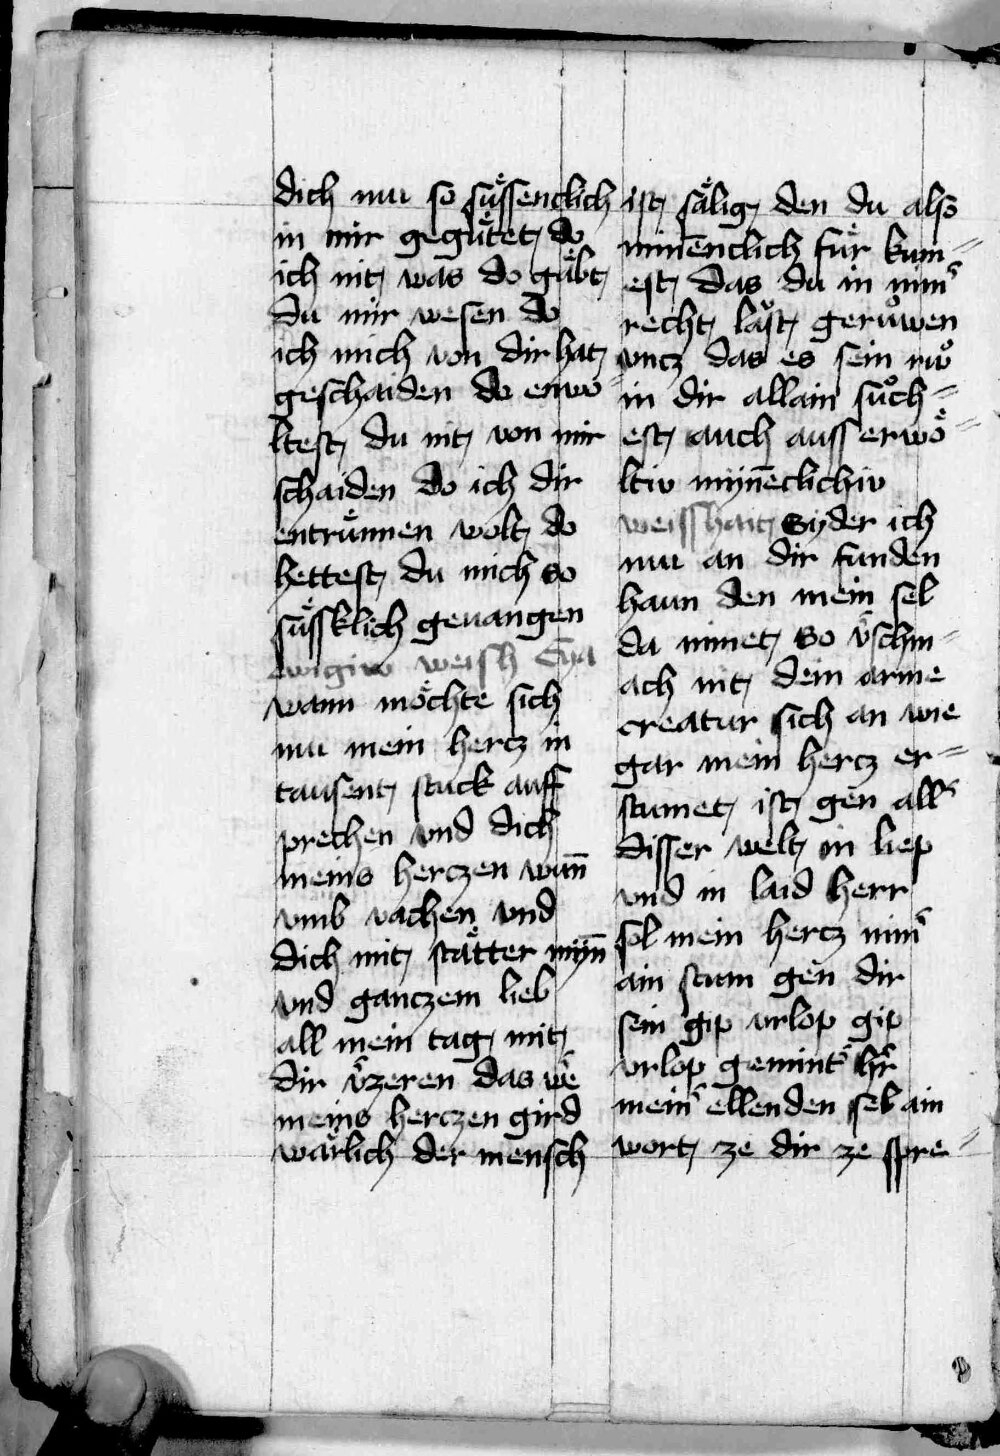 dich nu so su̍ssenclich
in mir gegu̍tet do
ich nit was do ga̍bt
du mir wesen do
ich mich von dir hat
geschaiden do enwo-
ltest du nit von mir
schaiden do ich dir
entru̍nnen wolt do
hettest du mich so
su̍ssklich geuangen
ewigiw weish Eya
wann mo̍chte sich
nu mein hercz in
tausent stuck auff
prechen vnd dich
meins herczen wun̄
vmb vachen vnd
dich mit sta̍tter myn̄
vnd ganczem lieb
all mein tag mit
dir v̾zeren das we̾
meins herczen gird
wa̍rlich der mensch
ist sa̍lig den du also
minēnclich fu̍r kum=
est das du in nim̾
recht la̍st geru̍wen
vncz das es sein ruͦ
in dir allain suͦch=
est auch ausserwo̍=
ltiv mynēclichiv
weisshait Syder ich
nu an dir funden
haun den mein sel
da minet so v̾schm=
ach nit dein arme
creatur sich an wie
gar mein hercz er=
stumet ist gen all̾
disser welt in liep
vnd in laid herr
sol mein hercz nim̾
ain stum gen dir
sein gip vrlop gip
vrlop gemint̾ hr̾
mein̾ ellenden sel ain
wort ze dir ze spre=